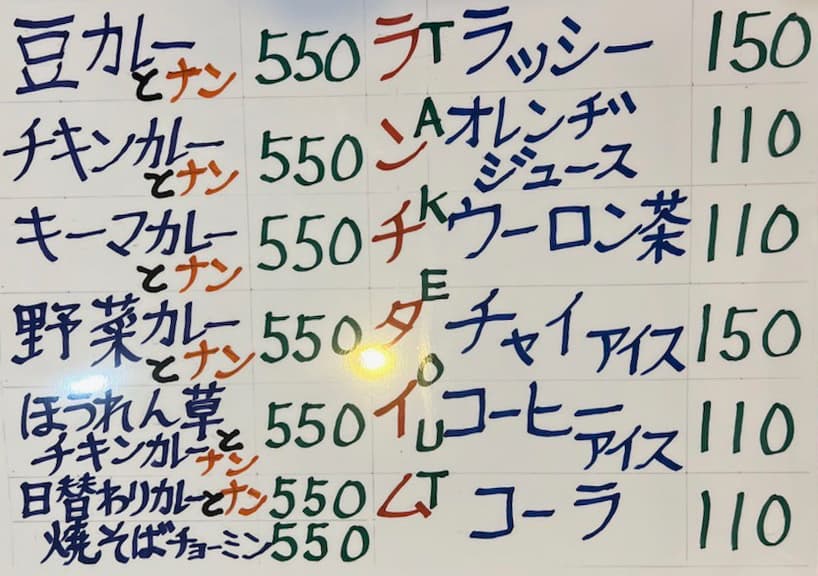 豆カレー
とナン 550
チキンカレー
とナン 550
キーマカレー
とナン 550
野菜カレー
とナン 550
ほうれん草
チキンカレーとナン 550
日替わりカレーとナン 550
焼そばチョーミン 550
ランチタイム
TAKEOUT
ラッシー 150
オレンヂ
ジュース 110
ウーロン茶 110
チャイ アイス 150
コーヒー
アイス 110
コーラ 110